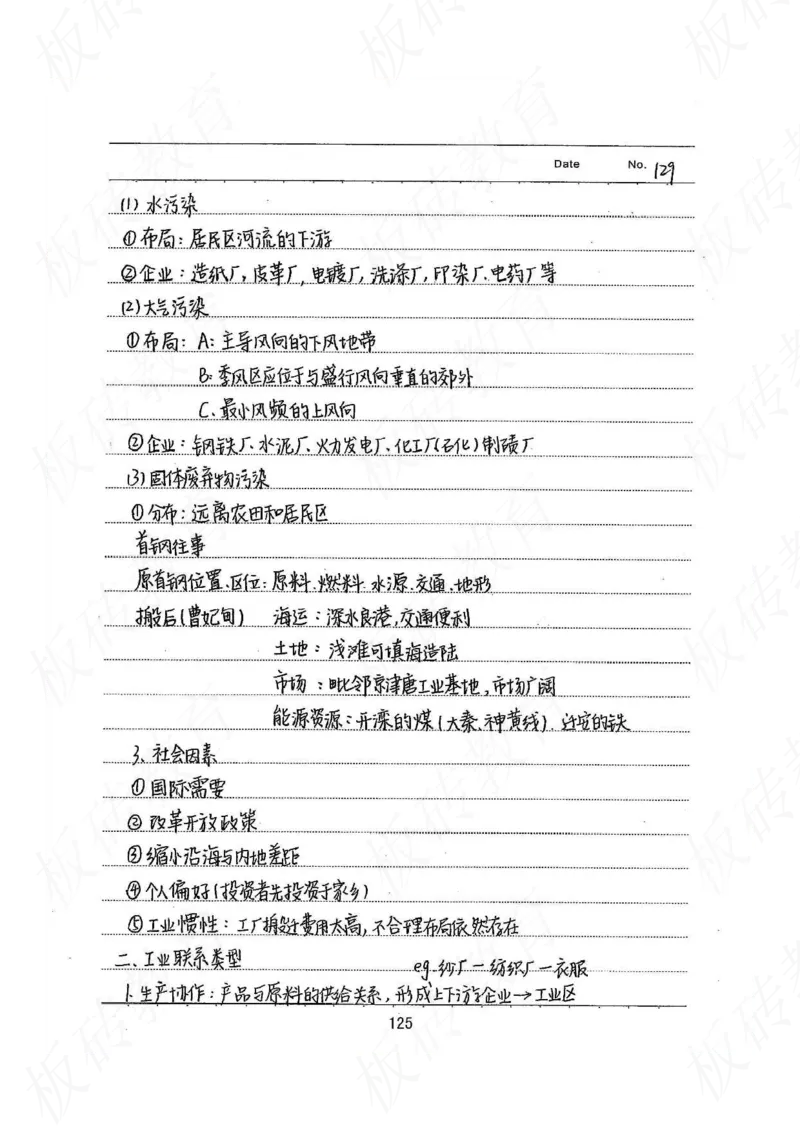 Date No. 129
(1) 水污染
①布局：居民区河流的下游
②企业：造纸厂，皮革厂，电镀厂，洗涤厂，印染厂、电药厂等
(2)大气污染
①布局：A：主导风向的下风地带
B：季风区应位于与盛行风向垂直的郊外
C、最小风频的上风向
②企业：钢铁厂、水泥厂、火力发电厂、化工厂(石化)制碛厂
(3)固体废弃物污染
①分布：远离农田和居民区
首钢往事
原首钢位置、区位：原料、燃料、水源、交通、地形
搬后(曹妃甸) 海运：深水良港，交通便利
土地：浅滩可填海造陆
市场：毗邻京津唐工业基地，市场广阔
能源资源：开滦的煤(大秦、神黄线)、迁安的铁
3、社会因素
①国际需要
②改革开放政策
③缩小沿海与内地差距
④个人偏好(投资者先投资于家乡)
⑤工业惯性：工厂搬迁费用太高，不合理布局依然存在
二、工业联系类型 eg.纱厂—纺织厂—衣服
1.生产协作：产品与原料的供给关系，形成上下游企业→工业区
125
板砖教育